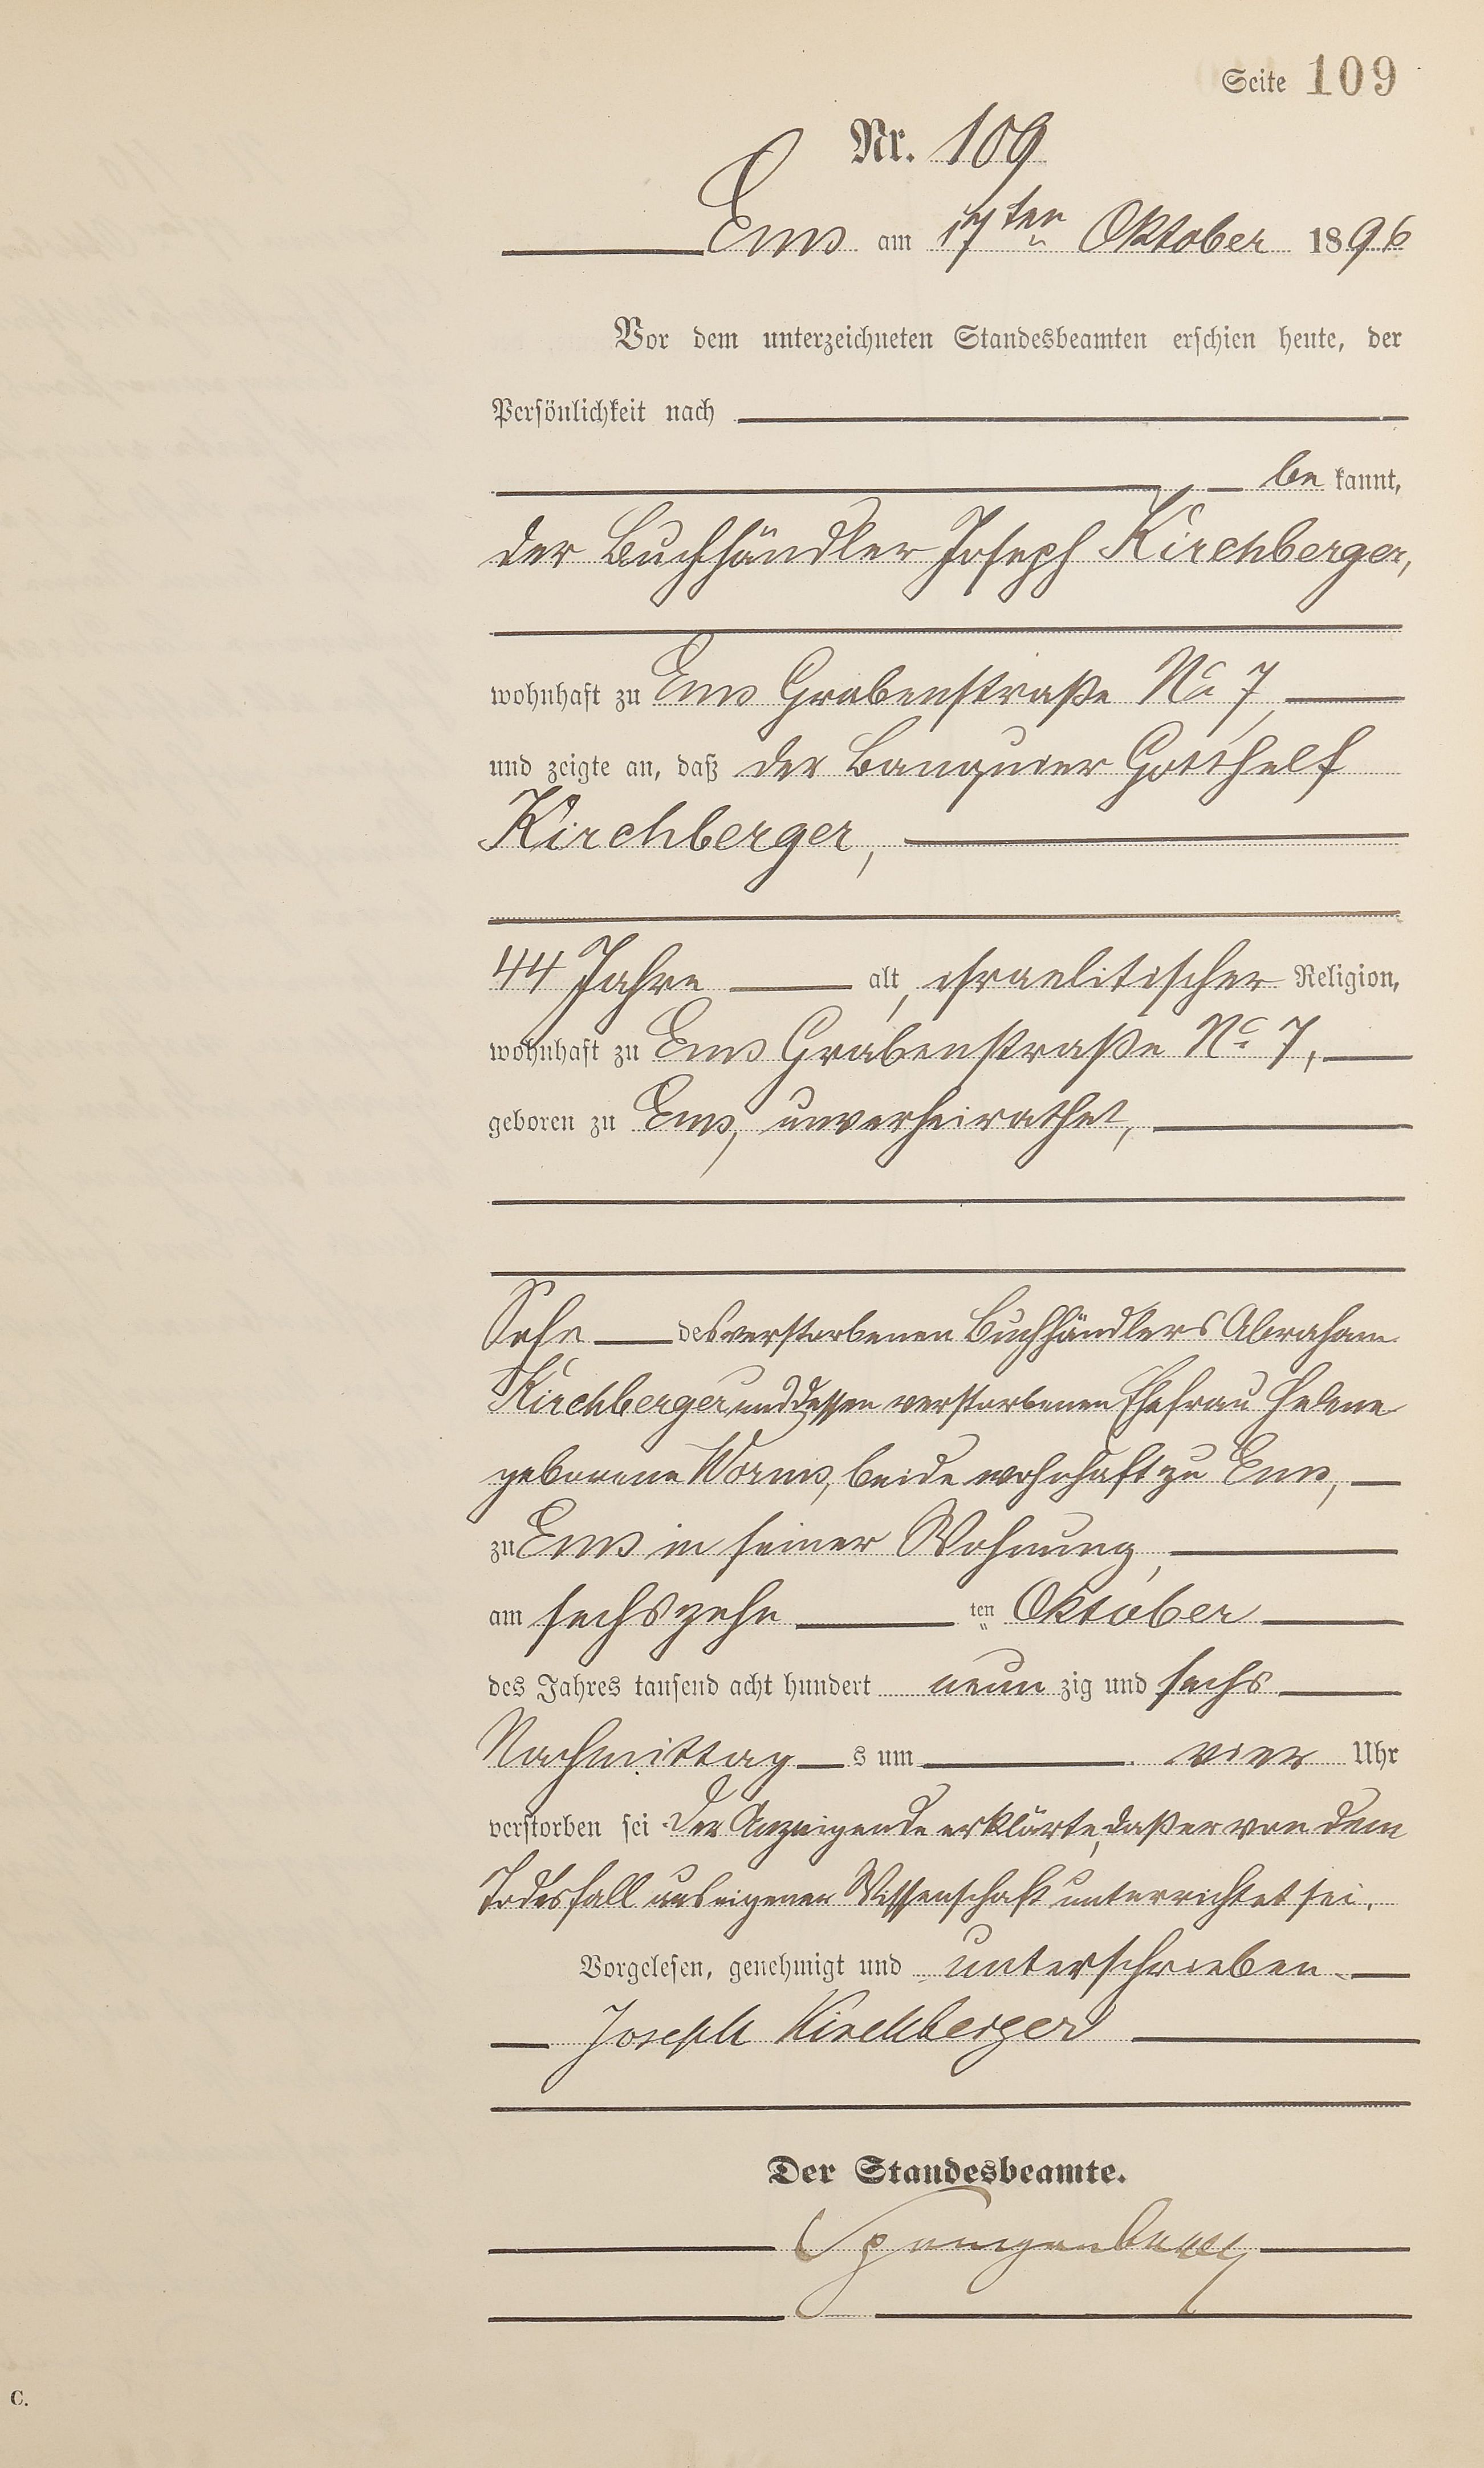 Seite 109
Nr. 109
Ems am 17ten Oktober 1896
Vor dem unterzeichneten Standesbeamten erschien heute, der
Persönlichkeit nach
be kannt,
der Buchhändler Joseph Kirchberger,
wohnhaft zu Ems Grabenstraße No 7,
und zeigte an, daß der Banquier Gotthelf
Kirchberger,
44 Jahre alt, israelitischer Religion,
wohnhaft zu Ems Grabenstraße No 7,
geboren zu Ems, unverheirathet,
Sohn des verstorbenen Buchhändlers Abraham
Kirchberger und dessen verstorbenen Ehefrau Helene
geborene Worms, beide wohnhaft zu Ems,
zu Ems in seiner Wohnung,
am sechszehn ten Oktober
des Jahres tausend acht hundert neun zig und sechs
Nachmittag s um vier Uhr
verstorben sei. Der Anzeigende erklärte, daß er von dem
Todesfall aus eigener Wissenschaft unterrichtet sei.
Vorgelesen, genehmigt und unterschrieben
Joseph Kirchberger
Der Standesbeamte.
Spangenberg
C.